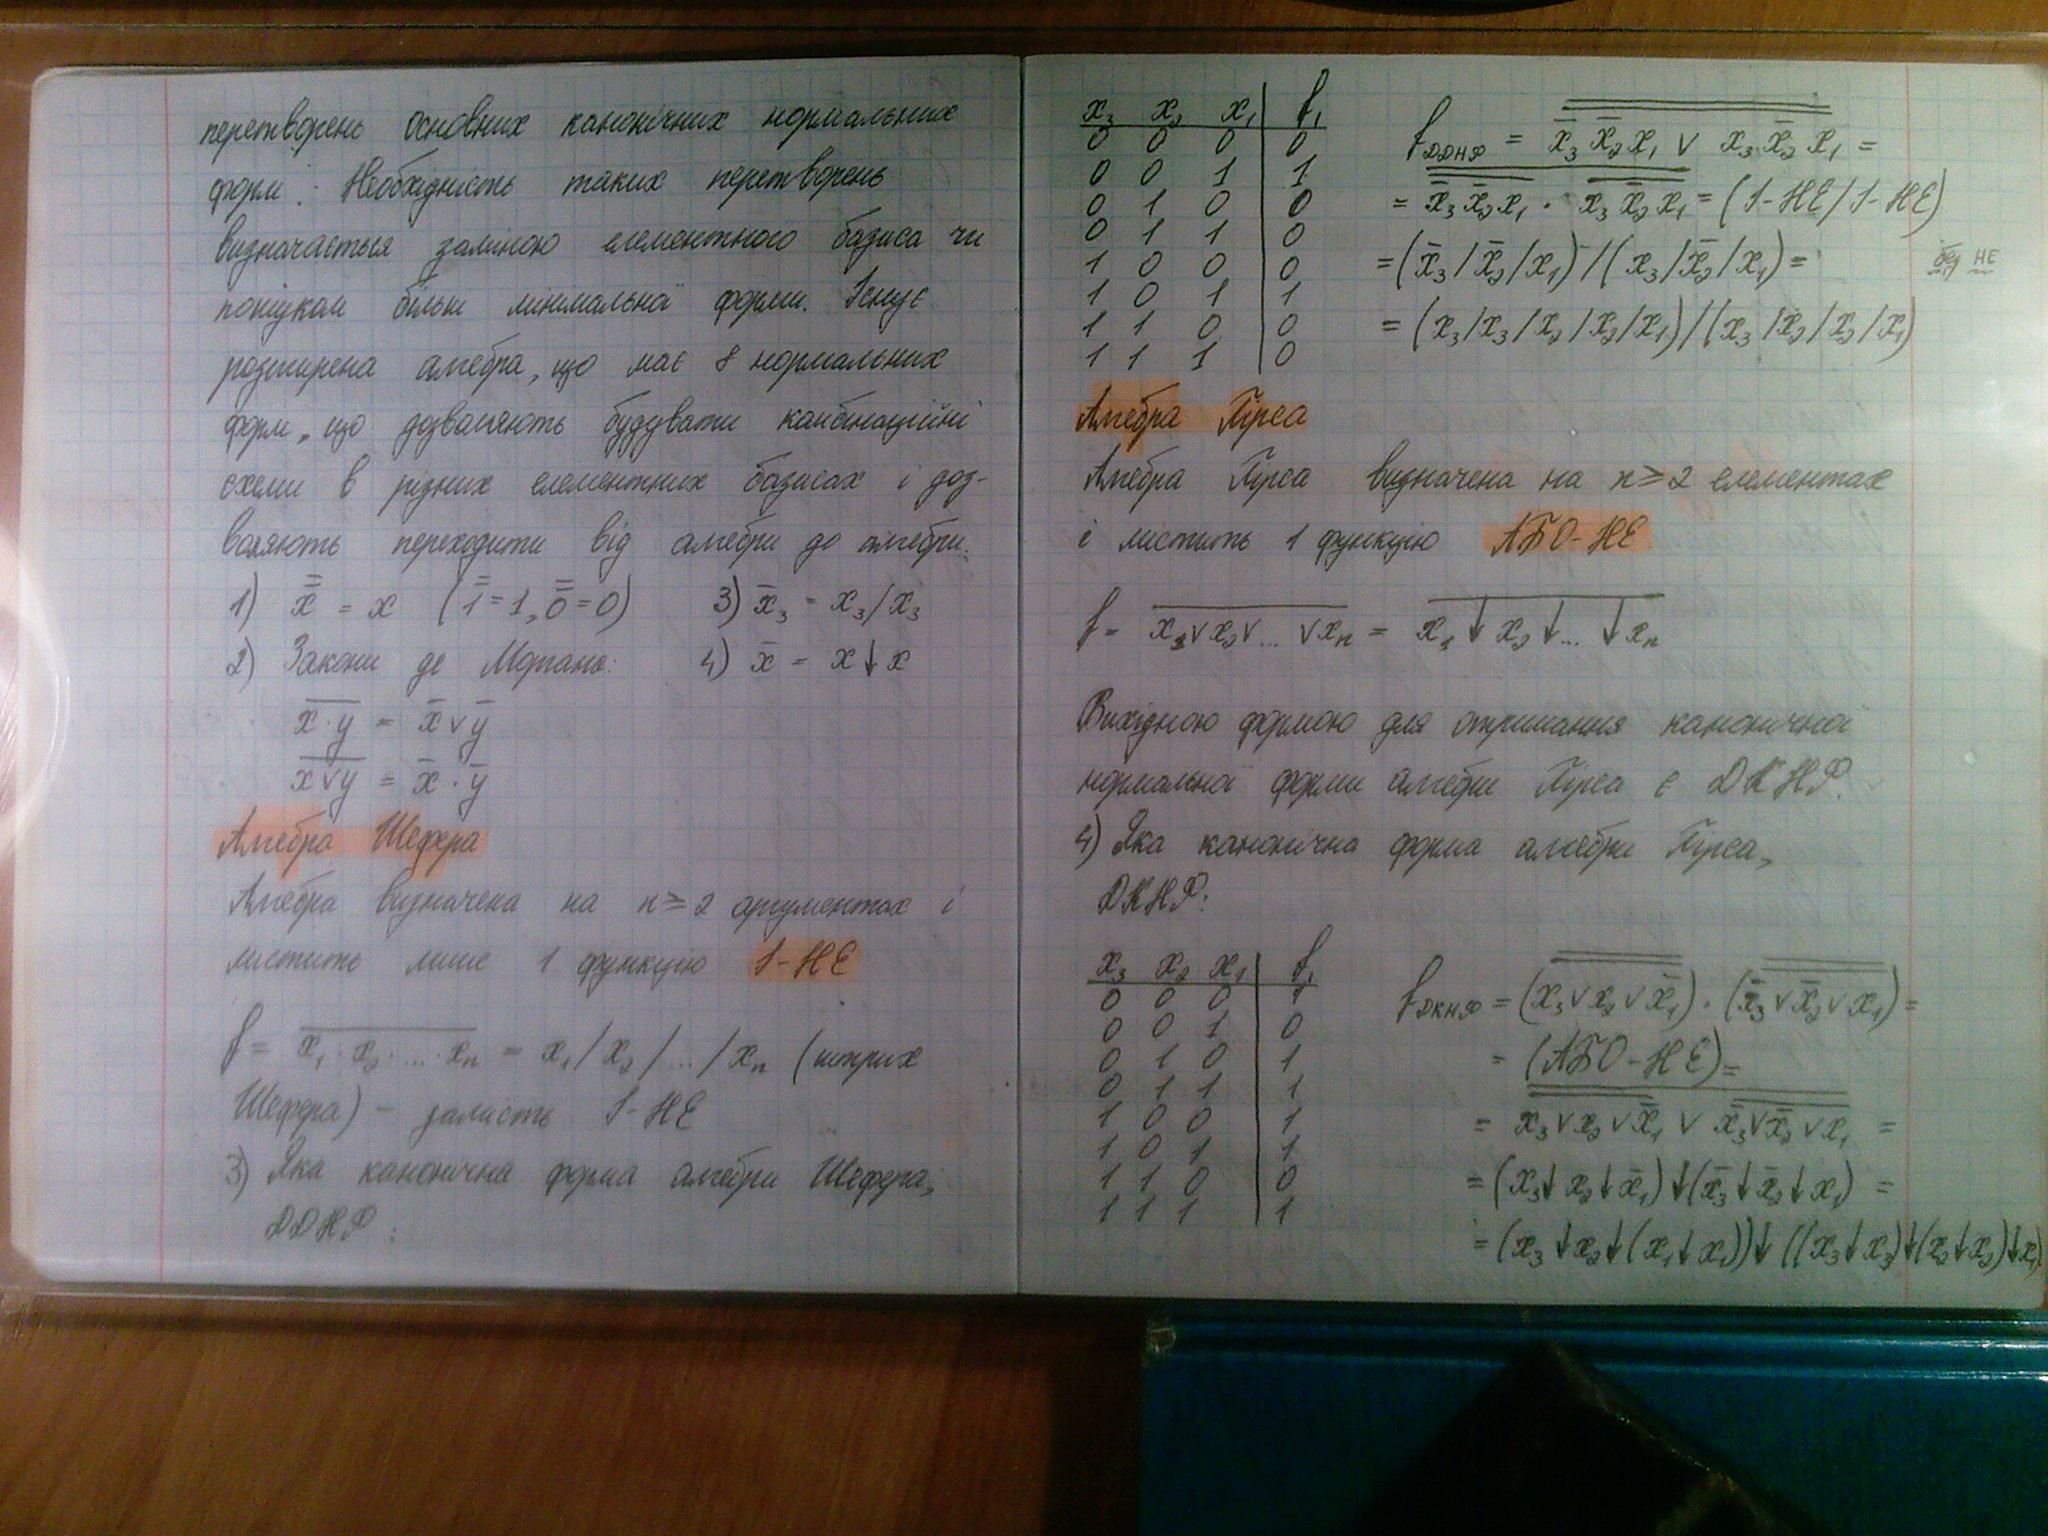 перетворень основних канонічних нормальних
форм. Необхідність таких перетворень
визначається заміною елементного базиса чи
пошуком більш мінімальної форми. Існує
розширена алгебра, що має 8 нормальних
форм, що дозволяють будувати комбінаційні
схеми в різних елементних базисах і доз-
воляють переходити від алгебри до алгебри.
1) x̿ = x (1̿ = 1, 0̿ = 0) 3) x̅₃ = x₃/x₃
2) Закони де Моргана: 4) x̅ = x↓x
\overline{x·y} = x̅ ∨ y̅
\overline{x∨y} = x̅ · y̅
Алгебра Шефера
Алгебра визначена на n ≥ 2 аргументах і
містить лише 1 функцію І-НЕ
f = \overline{x₁·x₂·...·xₙ} = x₁/x₂/.../xₙ (штрих
Шефера) – замість І-НЕ
3) Яка канонічна форма алгебри Шефера,
ДДНФ:
x₃ x₂ x₁ | f₁
0 0 0 | 0
0 0 1 | 1
0 1 0 | 0
0 1 1 | 0
1 0 0 | 0
1 0 1 | 1
1 1 0 | 0
1 1 1 | 0
f ДДНФ = \overline{\overline{x̅₃ x̅₂ x₁ ∨ x₃ x̅₂ x₁}} =
= \overline{\overline{x̅₃ x̅₂ x₁} · \overline{x₃ x̅₂ x₁}} = (І-НЕ/І-НЕ)
= (x̅₃/x̅₂/x₁)/(x₃/x̅₂/x₁) = без НЕ
= (x₃/x₃/x₂/x₂/x₁)/(x₃/x₂/x₂/x₁)
Алгебра Пірса
Алгебра Пірса визначена на n ≥ 2 елементах
і містить 1 функцію АБО-НЕ
f = \overline{x₁∨x₂∨...∨xₙ} = \overline{x₁↓x₂↓...↓xₙ}
Вихідною формою для отримання канонічної
нормальної форми алгебри Пірса є ДКНФ.
4) Яка канонічна форма алгебри Пірса,
ДКНФ:
x₃ x₂ x₁ | f₁
0 0 0 | 1
0 0 1 | 0
0 1 0 | 1
0 1 1 | 1
1 0 0 | 1
1 0 1 | 1
1 1 0 | 0
1 1 1 | 1
f ДКНФ = \overline{\overline{(x₃∨x₂∨x̅₁)}} · \overline{\overline{(x̅₃∨x̅₂∨x₁)}} =
= (АБО-НЕ) =
= \overline{\overline{x₃∨x₂∨x̅₁} ∨ \overline{x̅₃∨x̅₂∨x₁}} =
= (x₃↓x₂↓x̅₁)↓(x̅₃↓x̅₂↓x₁) =
= (x₃↓x₂↓(x₁↓x₁))↓((x₃↓x₃)↓(x₂↓x₂)↓x₁)